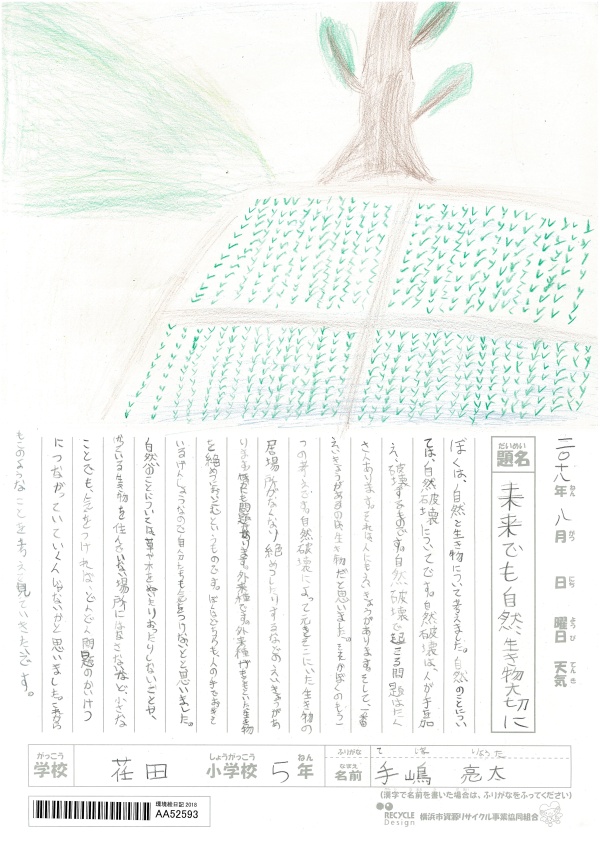 二〇一八年 八月 日 曜日 天気
ねん がつ にち ようび てんき
だいめい
題名
未来でも自然、生き物大切に
ぼくは、自然と生き物について考えました。自然のことについ
ては、自然破壊についてです。自然破壊は、人が手を加
え、破壊するものです。自然破壊で起こる問題はたく
さんあります。それは人にもえいきょうがあります。そして、一番
えいきょうがあるのは、生き物だと思いました。そこがぼくのもう一
つの考えです。自然破壊によって元々そこにいた生き物の
居場所がなくなり絶めつしたりするなどのえいきょうがあ
ります。他にも問題があります。外来種です。外来種がもともといた生き物
を絶めつにおいこむというものです。ぼくはどちらも、人の手でおきて
いるげんしょうなので自分たちも気をつけないとと思いました。
自然のことについては、草や木をぬいたりおったりしないことや、
かっている生物を住んでいない場所にはなさないなど、小さな
ことでも気をつければ、どんどん問題のかいけつ
につながっていくんじゃないかと思いました。これから
もこのようなことを考えて見ていきたいです。
がっこう しょうがっこう ねん ふりがな てじま りょうた
学校 荏田 小学校 5年 なまえ 名前 手嶋 亮太
(漢字で名前を書いた場合は、ふりがなをふってください)
環境絵日記2018
AA52593
RECYCLE Design 横浜市資源リサイクル事業協同組合